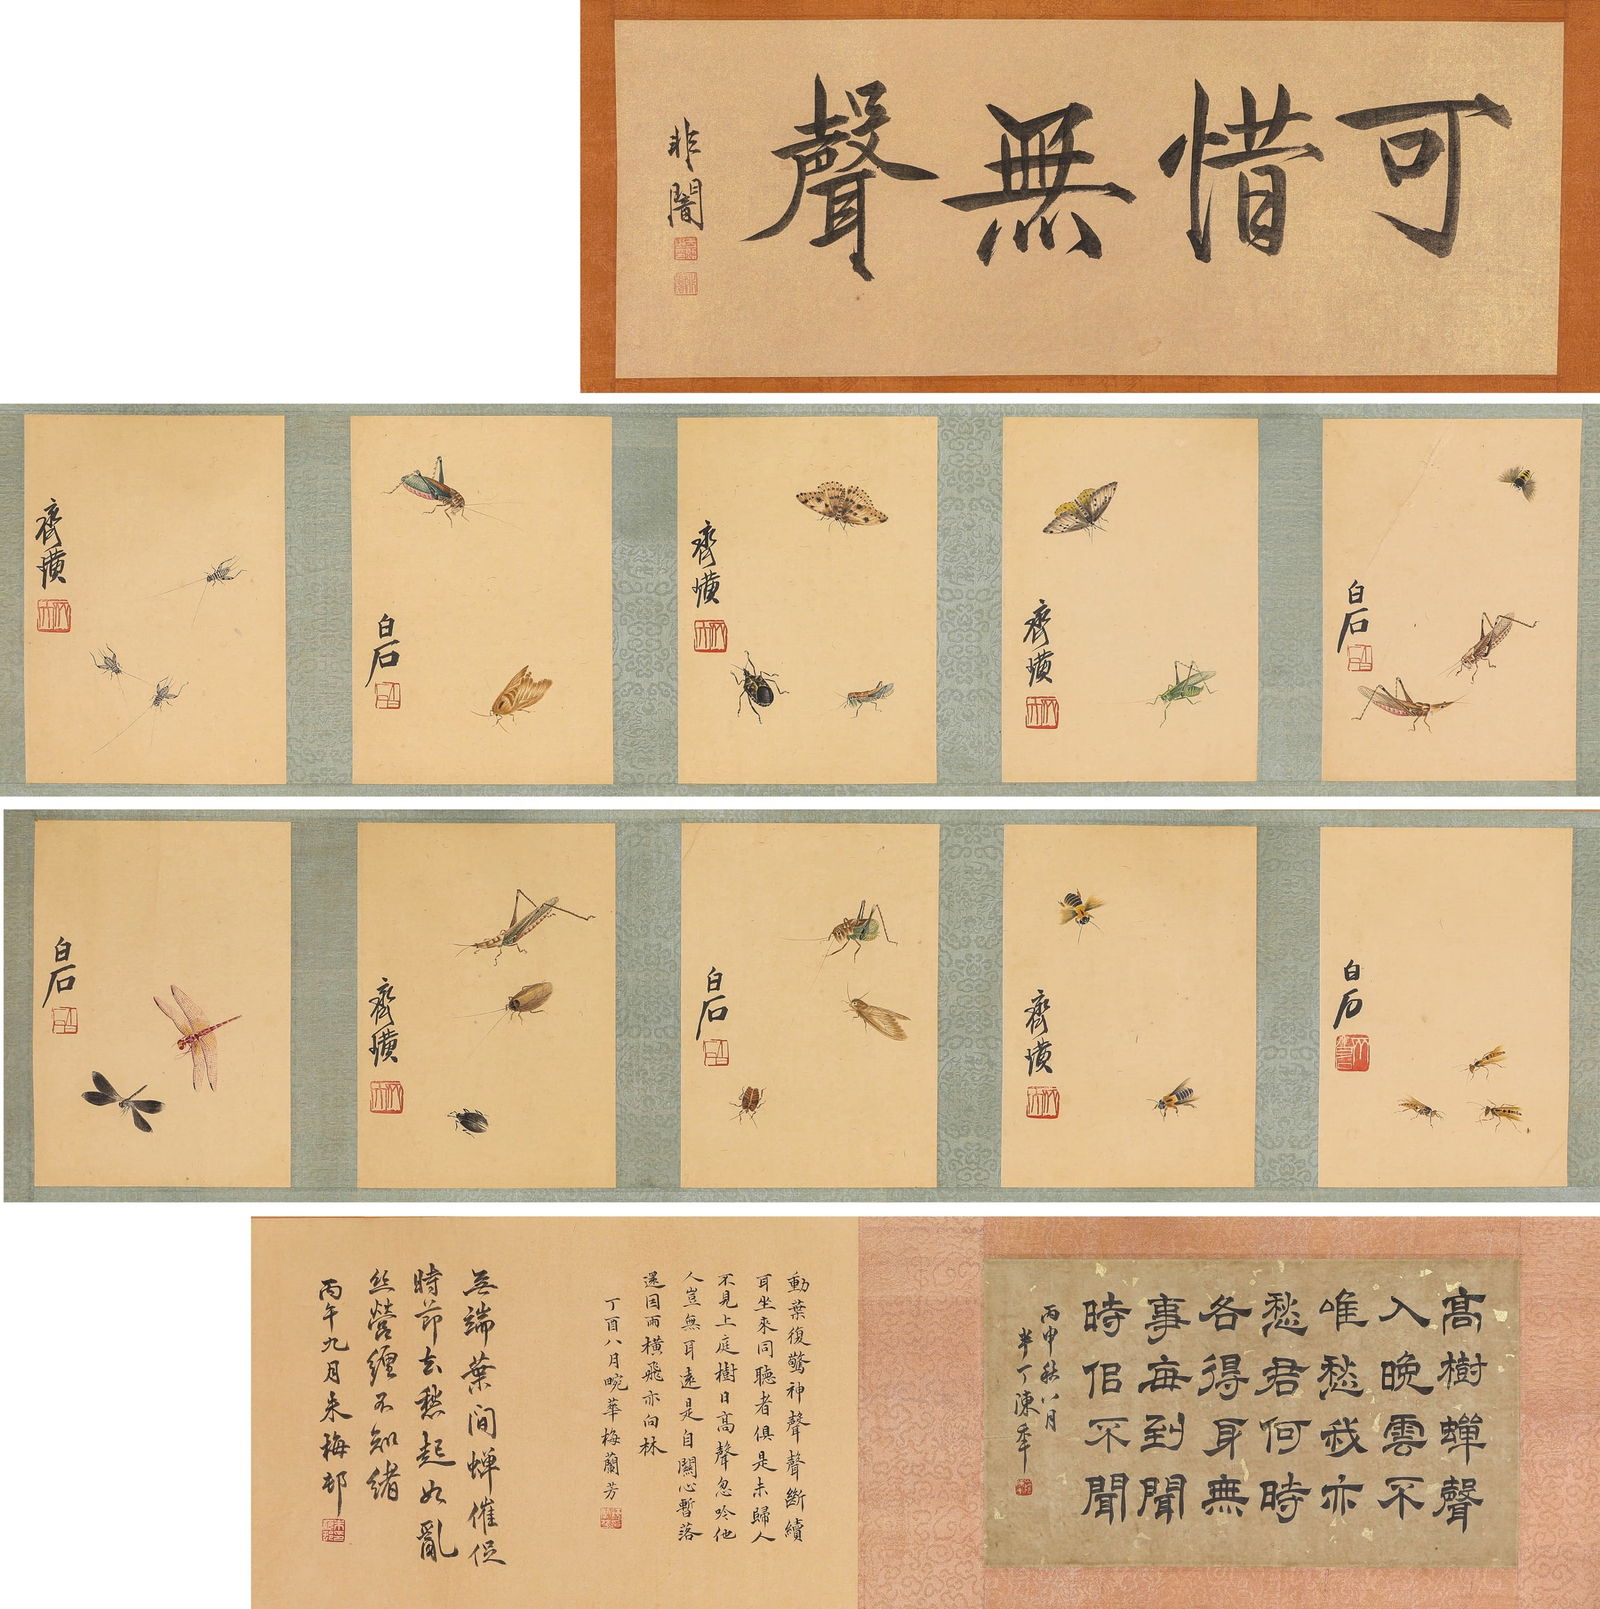 可惜無聲
非闇
白石
齊璜
齊璜
白石
齊璜
白石
齊璜
白石
齊璜
白石
高樹蟬聲
入晚雲不
唯愁我亦
愁君何時
各得身無
事每到聞
時佀不聞
丙申秋八月
半丁陳年
動葉復驚神聲聲斷續
耳坐來同聽者俱是未歸人
不見上庭樹日高聲忽吟他
人豈無耳遠是自關心暫落
還因雨橫飛亦向林
丁酉八月畹華梅蘭芳
无端葉間蟬催促
時節去愁起如亂
絲縈纏不知緒
丙午九月朱梅邨